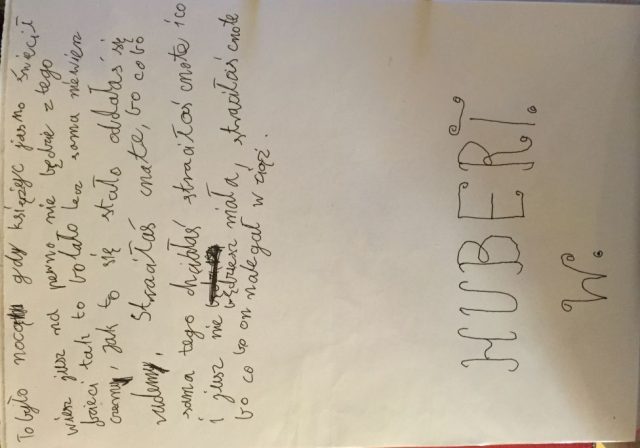 To było nocą gdy księżyc jasno świecił
wiesz jusz na pewno nie będzie z tego
dzieci tak to bolało lecz sama niewiem
czemy, jak to się stało oddałaś się
rudemy. Straciłaś cnote, bo co bo
sama tego chciałaś straciłaś cnote i co
i jusz nie będziesz miała, straciłaś cnote
bo co bo on nalegał w ciąż.
HUBERT.
W.